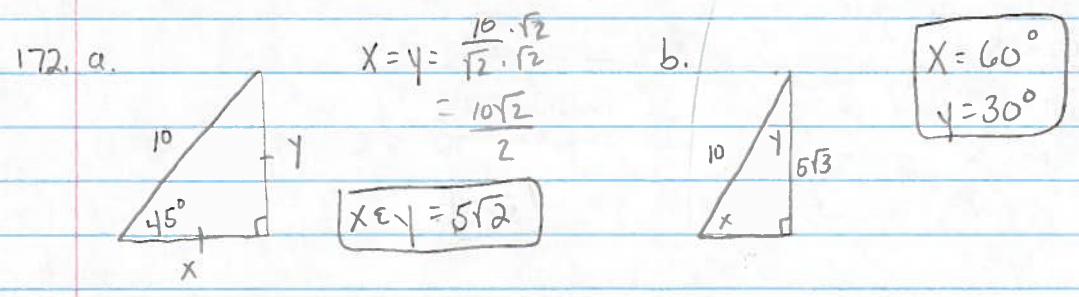 172. a.
10
45°
x
y
x = y = 10 · √2 / √2 · √2
= 10√2 / 2
x & y = 5√2
b.
10
y
5√3
x
x = 60°
y = 30°